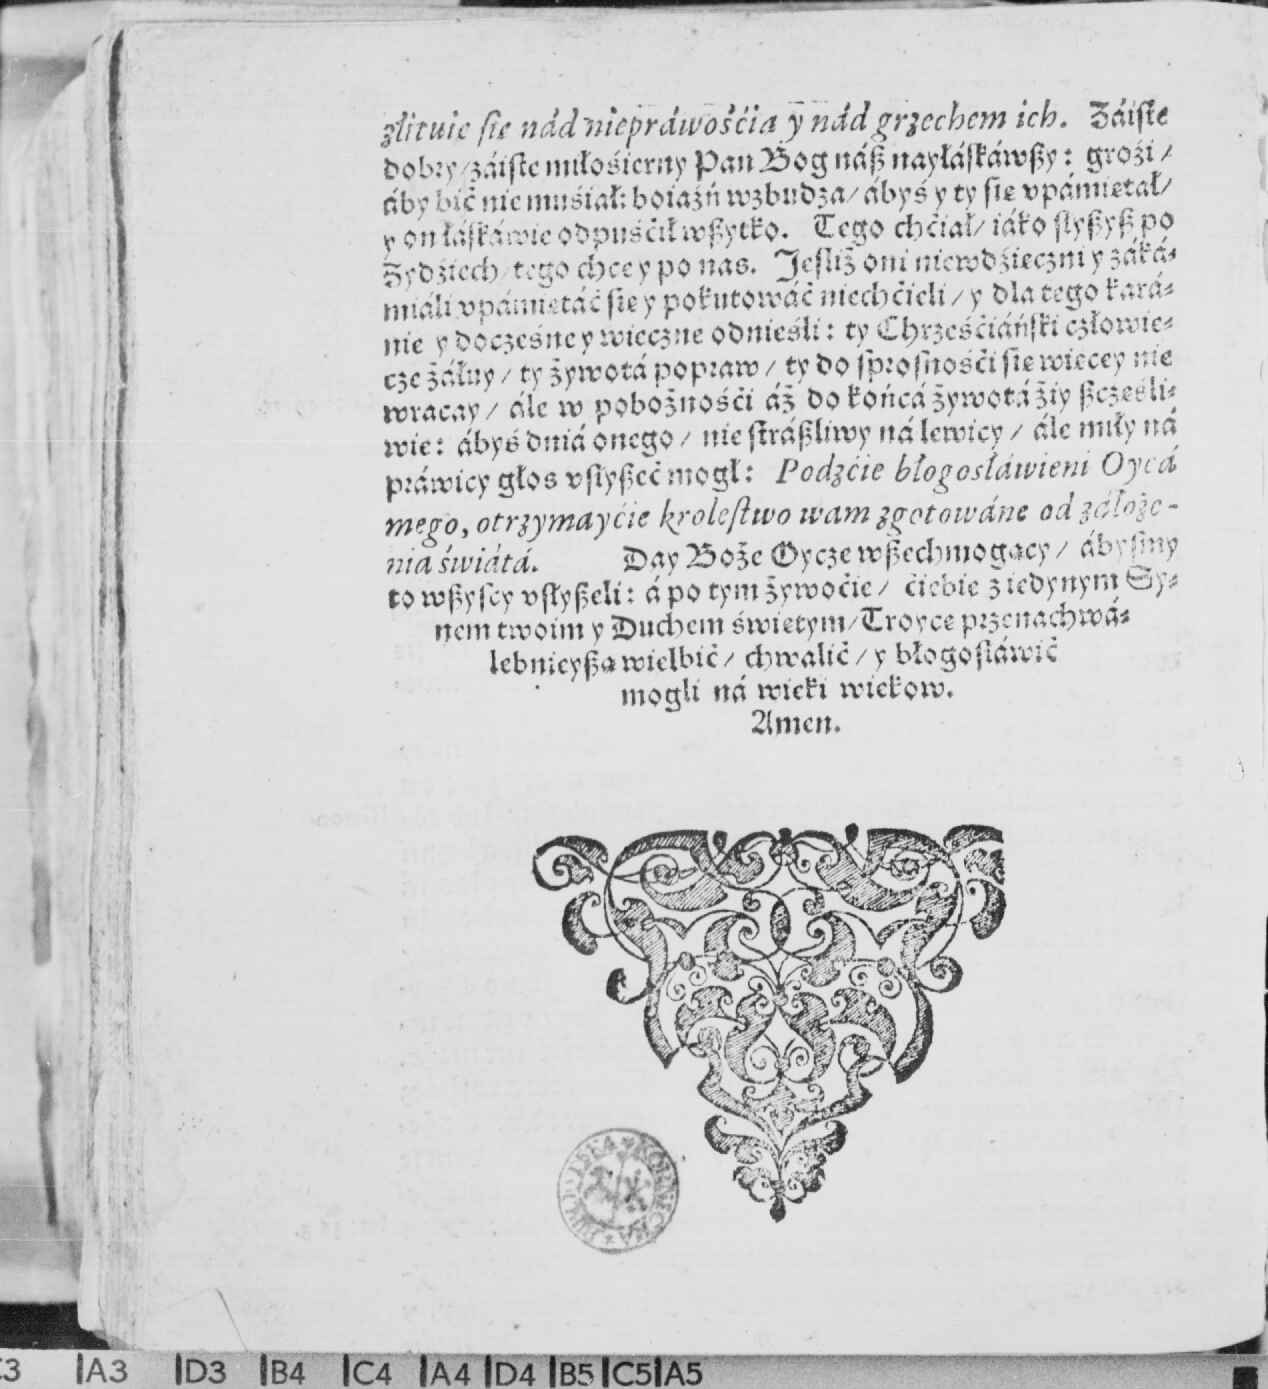 zlituie ſie nád niepráwośćia y nád grzechem ich. Záiſte
dobry/ záiſte miłośierny Pan Bog náß nayłáſkáwßy: groźi/
áby bić nie muśiał: boiaźń wzbudza/ ábyś y ty ſie vpámietał/
y on łáſkáwie odpuśćił wßytko. Tego chćiał/ iáko ſłyßyß po
Zydźiech/ tego chce y po nas. Jeſliż oni niewdźieczni y záká-
miáli vpámietáć ſie y pokutowáć niechćieli/ y dla tego kará-
nie y docześne y wieczne odnieśli: ty Chrześćiáńſki człowie-
cze żáłuy/ ty żywotá popraw/ ty do ſproſnośći ſie wiecey nie
wracay/ ále w pobożnośći áż do końcá żywotá żiy ßcześli-
wie: ábyś dniá onego/ nie ſtráßliwy ná lewicy/ ále miły ná
práwicy głos vſłyßeć mogł: Podzćie błogosłáwieni Oycá
mego, otrzymayćie kroleſtwo wam zgotowáne od záłoże-
nia świátá. Day Boże Oycze wßechmogacy/ ábyſmy
to wßyſcy vſłyßeli: á po tym żywoćie/ ćiebie z iedynym Sy-
nem twoim y Duchem świetym/ Troyce przenachwá-
lebnieyßa wielbić/ chwalić/ y błogoſłáwić
mogli ná wieki wiekow.
Amen.
C3 A3 D3 B4 C4 A4 D4 B5 C5 A5